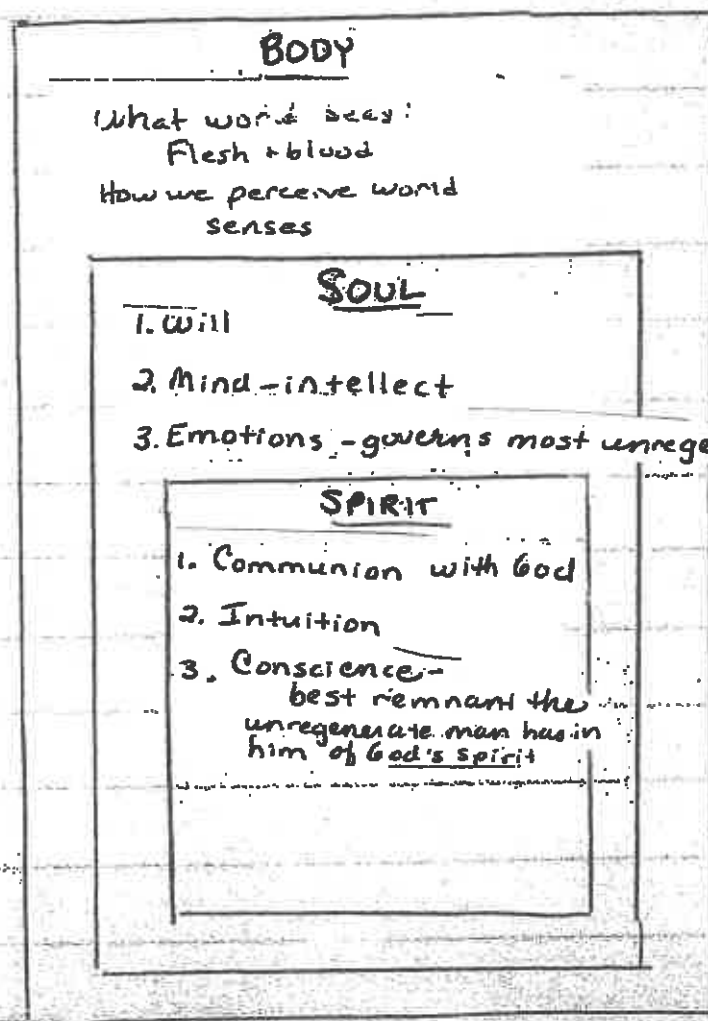 BODY
What world sees:
Flesh + blood
How we perceive world
senses
SOUL
1. Will
2. Mind - intellect
3. Emotions - governs most unrege
SPIRIT
1. Communion with God
2. Intuition
3. Conscience -
best remnant the
unregenerate man has in
him of God's spirit